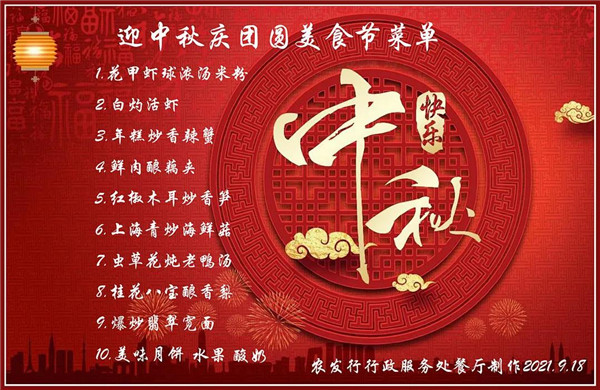 迎中秋庆团圆美食节菜单
1.花甲虾球浓汤米粉
2.白灼活虾
3.年糕炒香辣蟹
4.鲜肉酿藕夹
5.红椒木耳炒香笋
6.上海青炒海鲜菇
7.虫草花炖老鸭汤
8.桂花八宝酿香梨
9.爆炒翡翠宽面
10.美味月饼 水果 酸奶
中秋
快乐
农发行行政服务处餐厅制作2021.9.18